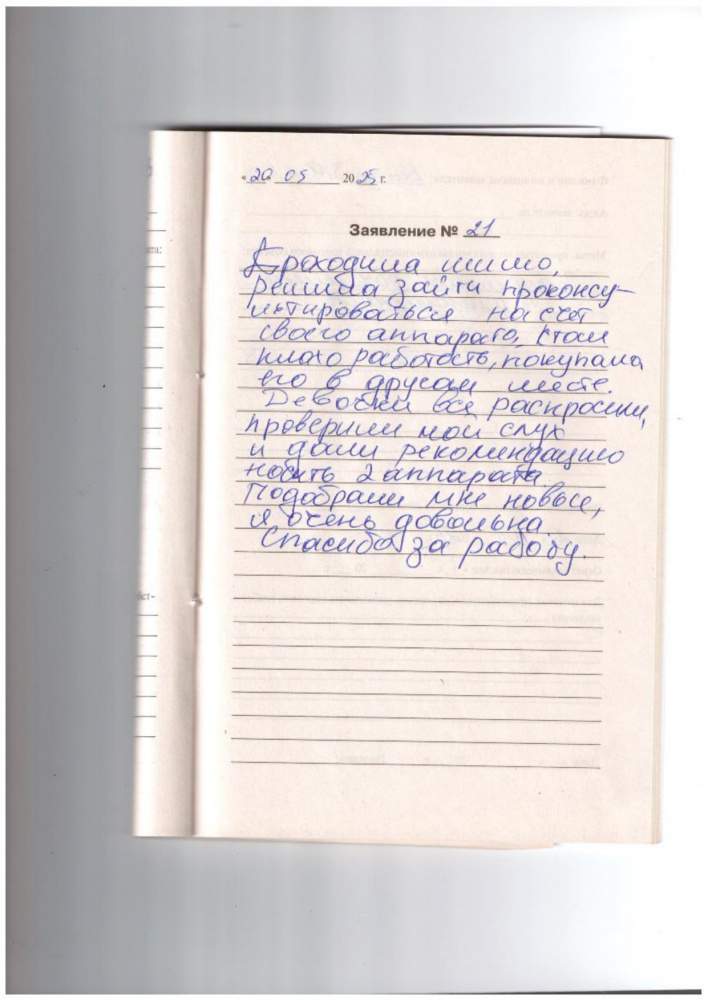 « 20 » 05 2025 г.
Заявление № 21
Проходила мимо,
решила зайти проконсу-
льтироваться на счет
своего аппарата, стал
плохо работать, покупала
его в другом месте.
Девочки все распросили,
проверили мой слух
и дали рекомендацию
носить 2 аппарата
Подобрали мне новые,
я очень довольна.
Спасибо за работу.